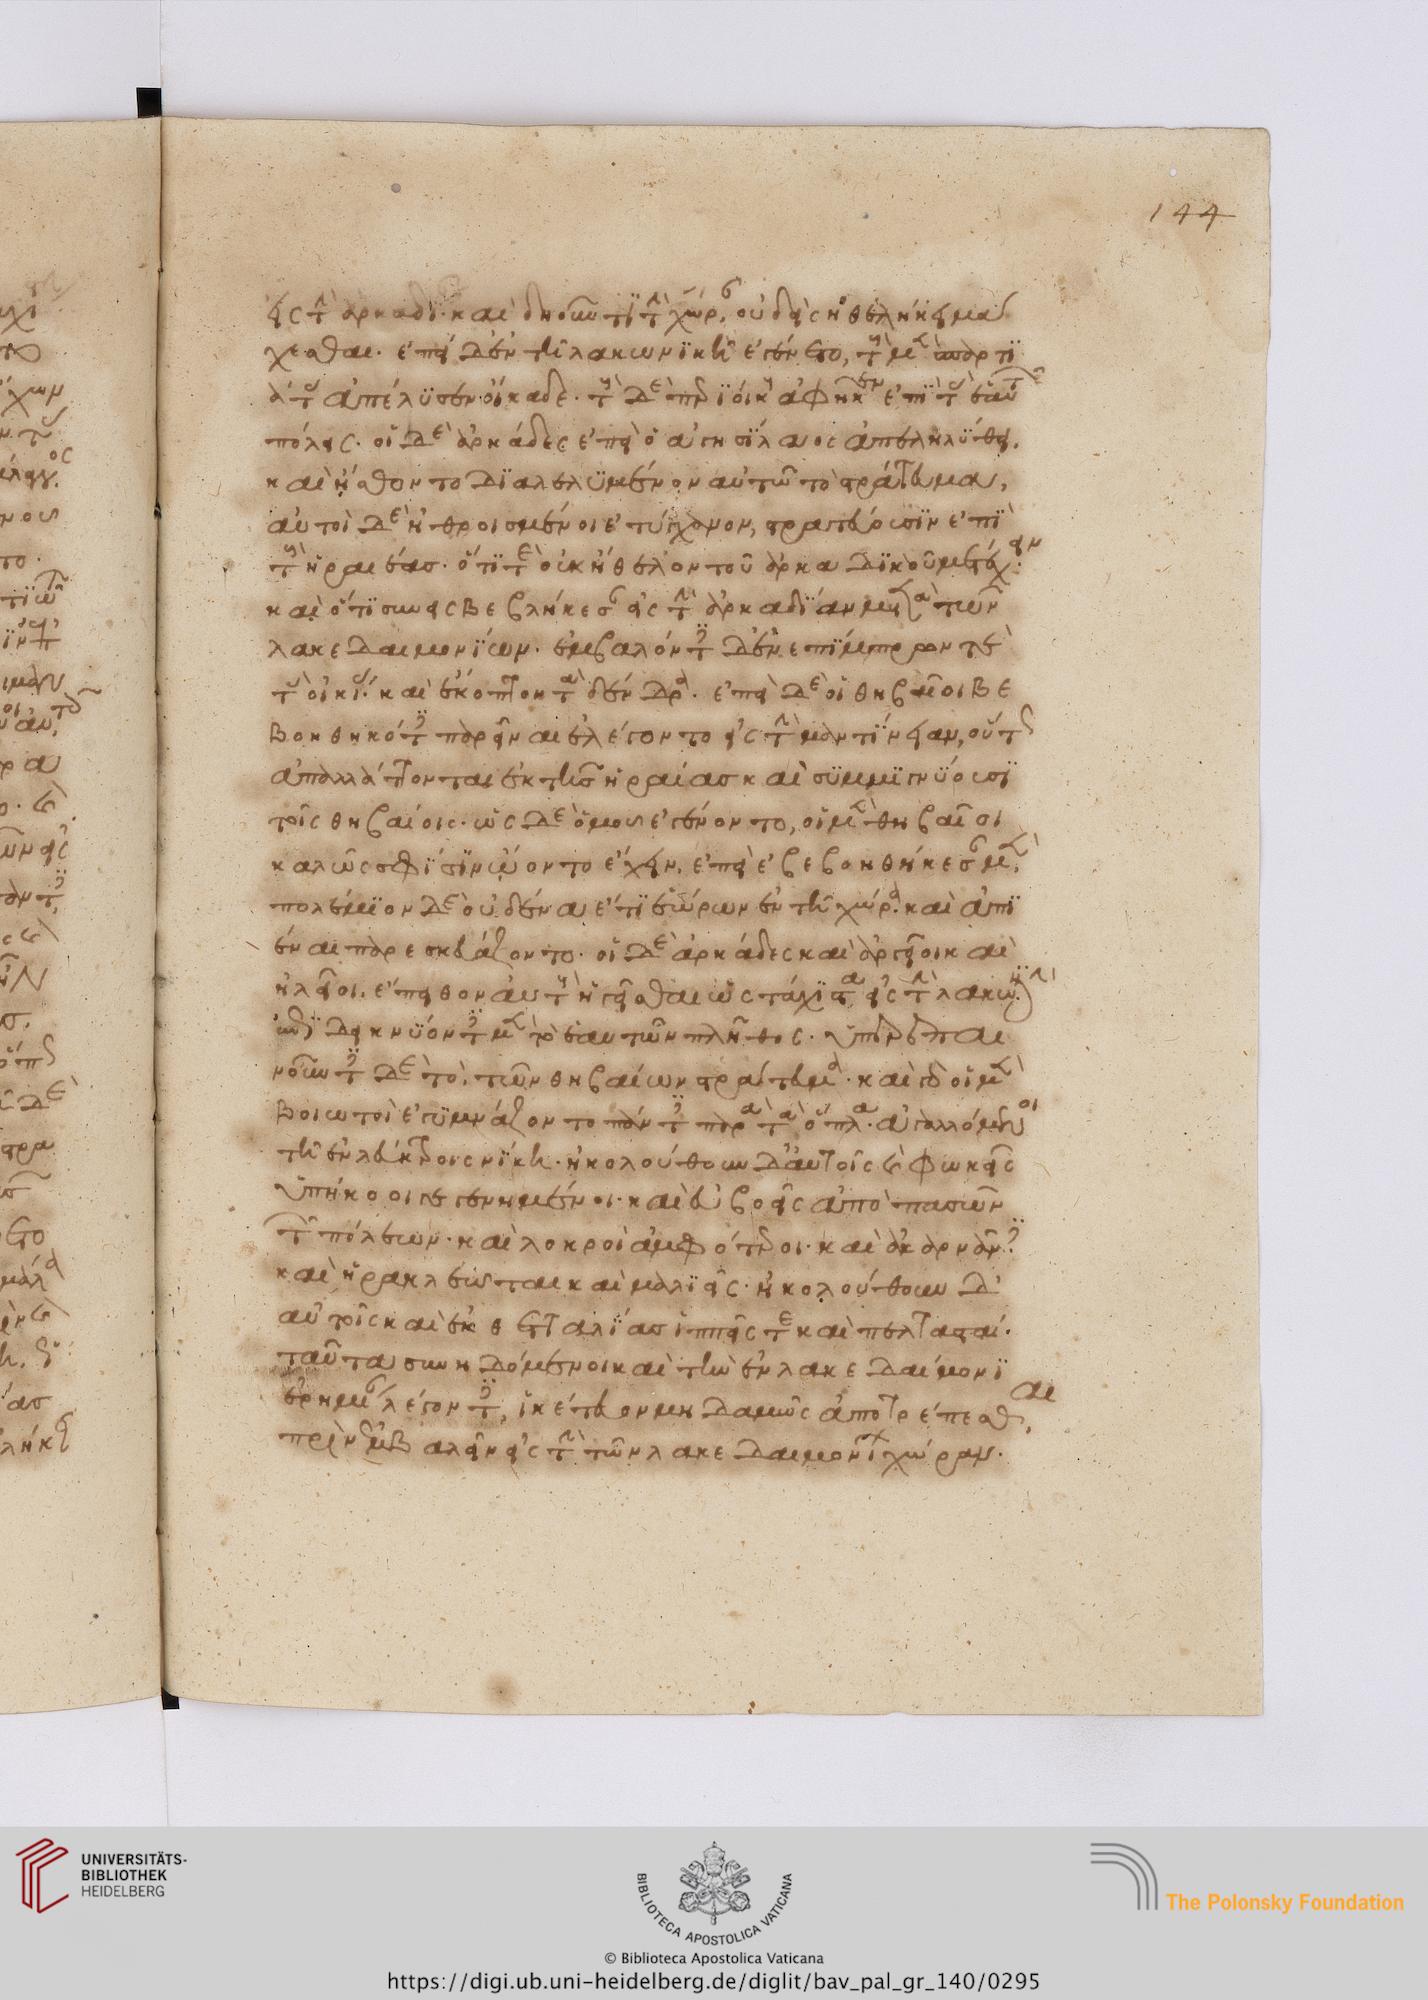 144
εἰς τὴν ἀρκαδίαν· καὶ δηοῦντι τὴν χώραν, οὐδεὶς ἠθέλησε μα
χεσθαι. ἐπεὶ δὲ ἐν τῇ λακωνικῇ ἐγένετο, τοὺς μὲν σπαρτι
άτας ἀπέλυσεν οἴκαδε· τοὺς δὲ περιοίκους ἀφῆκεν ἐπὶ τὰς ἑαυτῶν
πόλεις. οἱ δὲ ἀρκάδες ἐπεὶ ὁ ἀγησίλαος ἀπεληλύθει,
καὶ ᾔσθοντο διαλελυμένον αὐτῷ τὸ στράτευμα,
αὐτοὶ δὲ ἠθροισμένοι ἐτύγχανον, στρατεύουσιν ἐπὶ
τοὺς ἡραιέας· ὅτι τε οὐκ ἤθελον τοῦ ἀρκαδικοῦ μετέχειν
καὶ ὅτι συνεισβεβλήκεσαν εἰς τὴν ἀρκαδίαν μετὰ τῶν
λακεδαιμονίων. ἐμβαλόντες δὲ ἐνεπίμπρων τε
τὰς οἰκίας καὶ ἔκοπτον τὰ δένδρα. ἐπεὶ δὲ οἱ θηβαῖοι βε
βοηθηκότες παρεῖναι ἐλέγοντο εἰς τὴν μαντίνειαν, οὕτως
ἀπαλλάττονται ἐκ τῆς ἡραίας καὶ συμμιγνύουσι
τοῖς θηβαίοις. ὡς δὲ ὁμοῦ ἐγένοντο, οἱ μὲν θηβαῖοι
καλῶς σφίσιν ᾤοντο ἔχειν, ἐπεὶ ἐβεβοηθήκεσαν μὲν,
πολέμιον δὲ οὐδένα ἔτι ἑώρων ἐν τῇ χώρᾳ· καὶ ἀπι
έναι παρεσκευάζοντο. οἱ δὲ ἀρκάδες καὶ ἀργεῖοι καὶ
ἠλεῖοι, ἔπειθον αὐτοὺς ἡγεῖσθαι ὡς τάχιστα εἰς τὴν λακωνικὴν
ἐπιδεικνύοντες μὲν τὸ ἑαυτῶν πλῆθος· ὑπερεπαι
νοῦντες δὲ τὸ τῶν θηβαίων στράτευμα· καὶ γὰρ οἱ μὲν
βοιωτοὶ ἐγυμνάζοντο πάντες περὶ τὰ ὅπλα ἀγαλλόμενοι
τῇ ἐν λεύκτροις νίκῃ· ἠκολούθουν δ' αὐτοῖς καὶ φωκεῖς
ὑπήκοοι γεγενημένοι· καὶ εὐβοεῖς ἀπὸ πασῶν
τῶν πόλεων· καὶ λοκροὶ ἀμφότεροι· καὶ ἀκαρνᾶνες
καὶ ἡρακλεῶται καὶ μαλιεῖς· ἠκολούθουν δ'
αὐτοῖς καὶ ἐκ θετταλίας ἱππεῖς τε καὶ πελτασταί.
ταῦτα συνηδόμενοι καὶ τὴν ἐν λακεδαίμονι
ἐρημίαν λέγοντες, ἱκέτευον μηδαμῶς ἀποτρέπεσθαι,
πρὶν ἐμβαλεῖν εἰς τὴν τῶν λακεδαιμονίων χώραν.
UNIVERSITÄTS-
BIBLIOTHEK
HEIDELBERG
BIBLIOTECA APOSTOLICA VATICANA
The Polonsky Foundation
© Biblioteca Apostolica Vaticana
https://digi.ub.uni-heidelberg.de/diglit/bav_pal_gr_140/0295